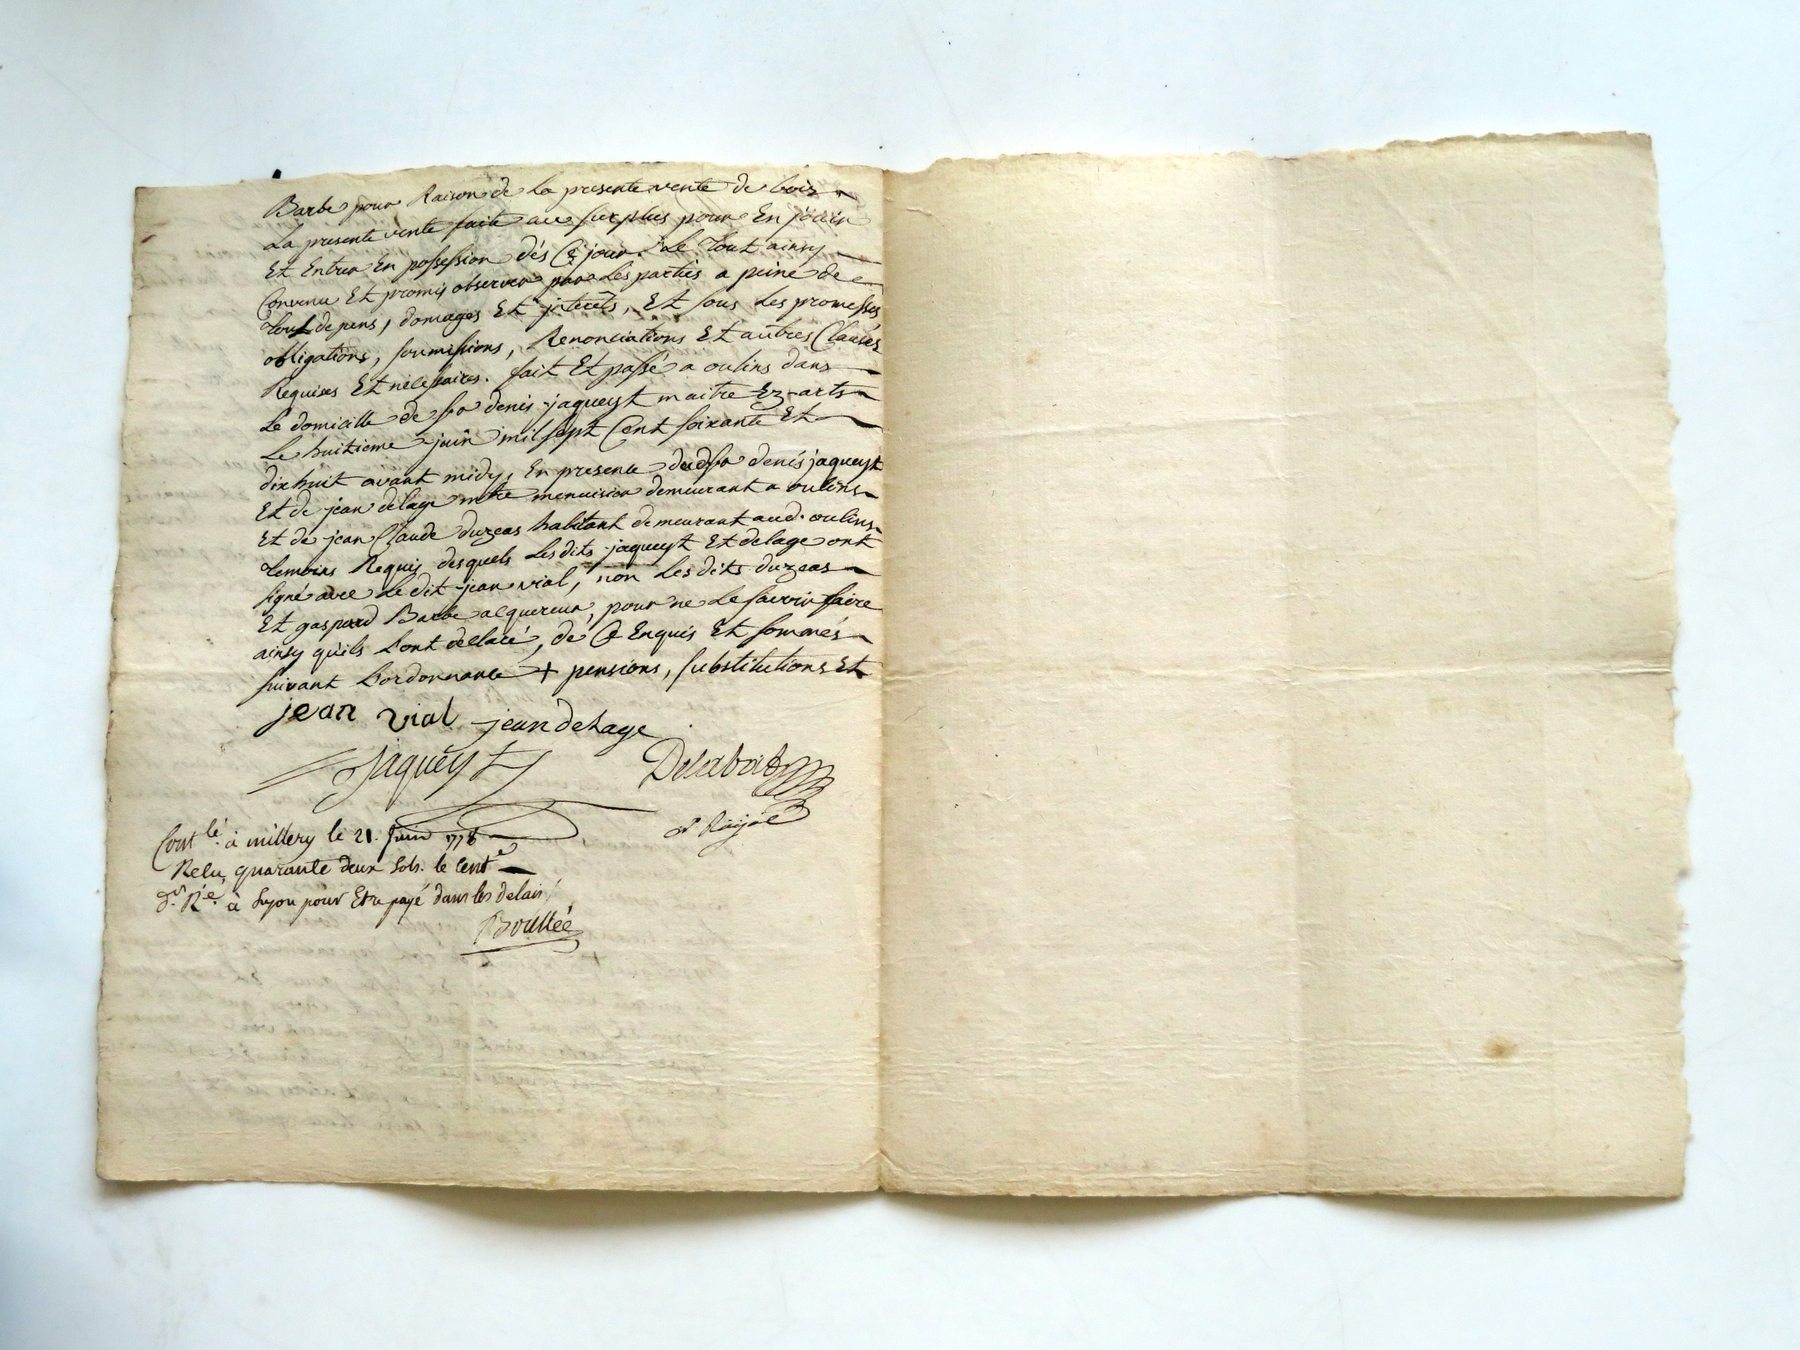 Barbe pour Raison de La presente vente de bois
La presente vente faite au surplus pour En jöuir
Et Entrer En possession dés Ce jour. Le Tout ainsy
Convenu Et promis observer par Les parties a peine de
Tous depens, domages Et jnterets, Et sous Les promesses
obligations, soumissions, Renonciations Et autres Clauses
Requises Et necessaires. fait Et passé a oulins dans
Le domicille de sr denis jaqueyt maitre Ez-arts
Le huitieme juin mil sept Cent soixante Et
dix huit avant midy, En presence dudsr denis jaqueyt
Et de jean delage mtre menuisier demeurant a oulins
Et de jean Claude duzeas habitant demeurant aud. oulins
Temoins Requis desquels Lesdits jaqueyt Et delage ont
signé avec Ledit jean vial, non Lesdits duzeas
Et gaspard Barbe acquereur, pour ne Le savoir faire
ainsy qu'ils L'ont déclaré, de Ce Enquis Et sommés
suivant L'ordonnance + pensions, substitutions Et
jean vial jean deLage
Jaqueyt
Contlé. à millery le 21. Juin 1778
Recu quarante deux sols. le Cente
à Lyon pour Etre payé dans les delais
Boullée